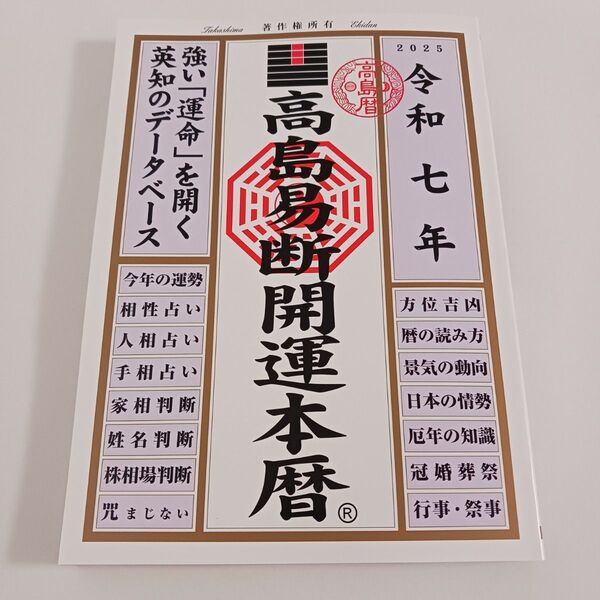 Takashima 著作権所有 Ekidan
2025
令和七年
高島暦
高島易断開運本暦®
強い「運命」を開く
英知のデータベース
方位吉凶
暦の読み方
景気の動向
日本の情勢
厄年の知識
冠婚葬祭
行事・祭事
今年の運勢
相性占い
人相占い
手相占い
家相判断
姓名判断
株相場判断
咒まじない